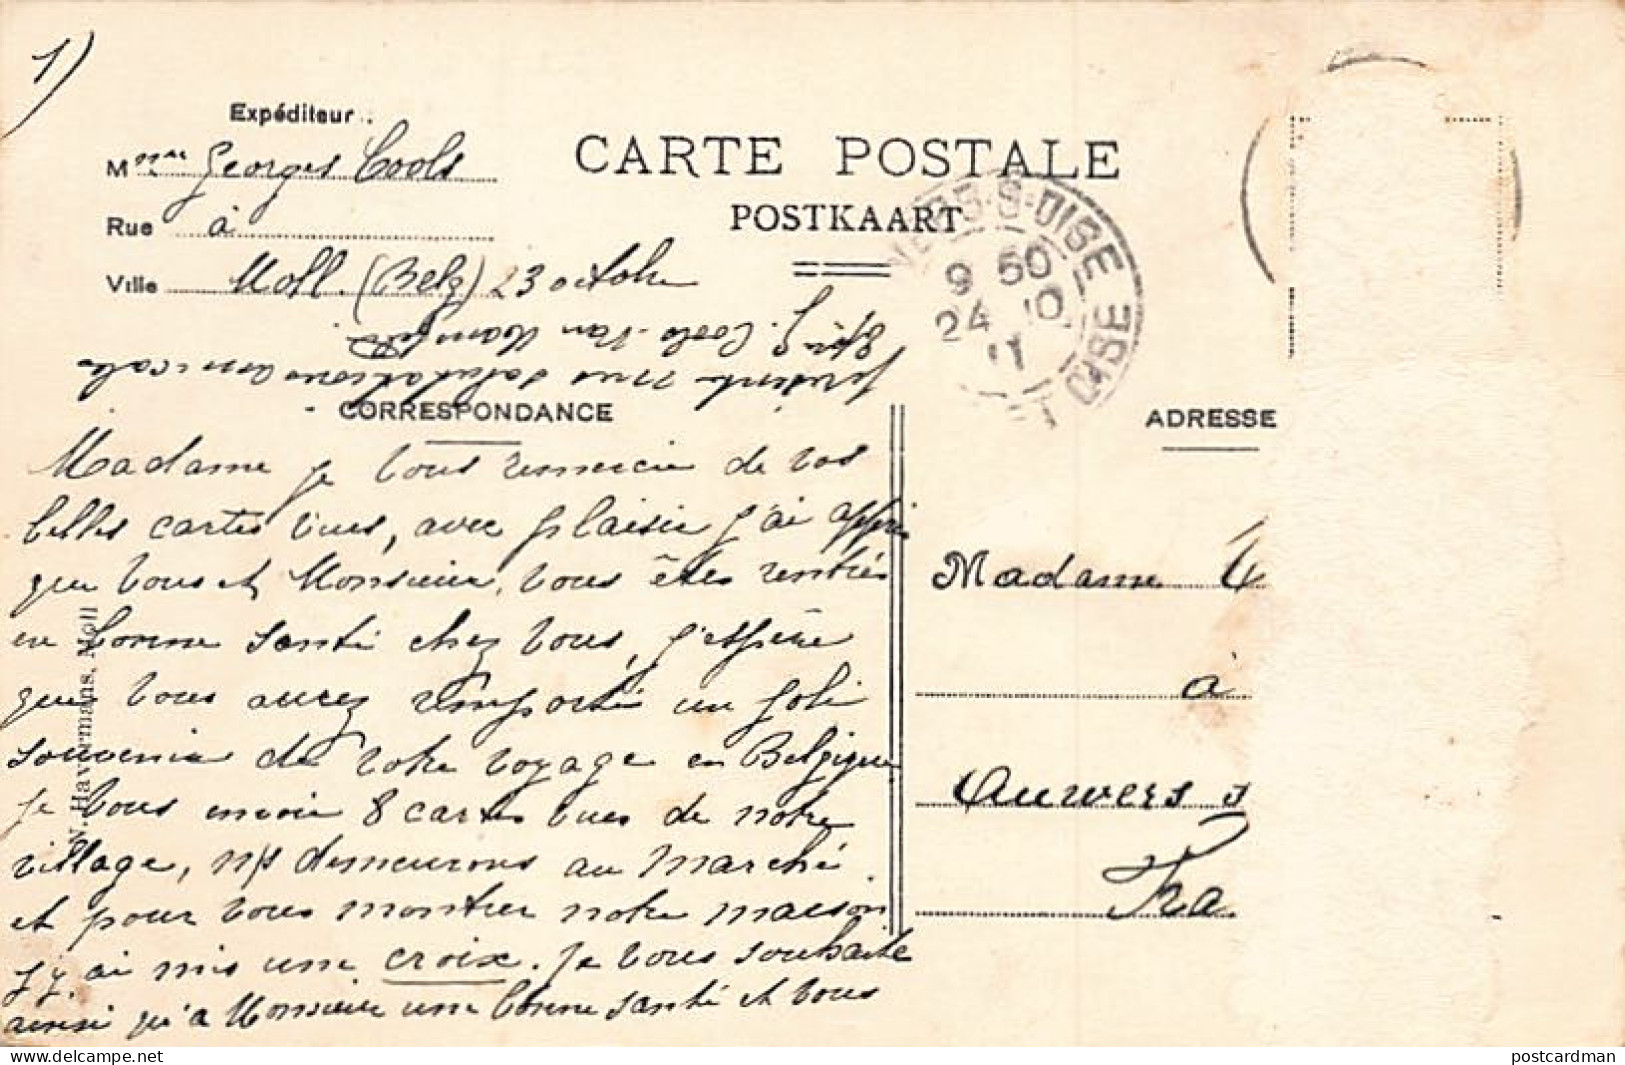 1)
Expéditeur :
Mme Georges Cools
Rue à
Ville Moll. (Belg) 23 octobre
CARTE POSTALE
POSTKAART
S-OISE
9 50
24 10
11
OISE
CORRESPONDANCE
Madame je vous remercie de vos
belles cartes vues, avec plaisir j'ai appris
que vous et Monsieur, vous êtes rentrés
en bonne santé chez vous, j'espère
que vous aurez remporté un joli
souvenir de votre voyage en Belgique
je vous envoie 8 cartes vues de notre
village, ns demeurons au marché.
et pour vous montrer notre maison
j'y ai mis une croix. Je vous souhaite
ainsi qu'à Monsieur une bonne santé et vous
présente mes salutations amicales
G. Cools-Van
N. Havermans, Moll
ADRESSE
Madame
à
Auvers s
Fra
postcardman